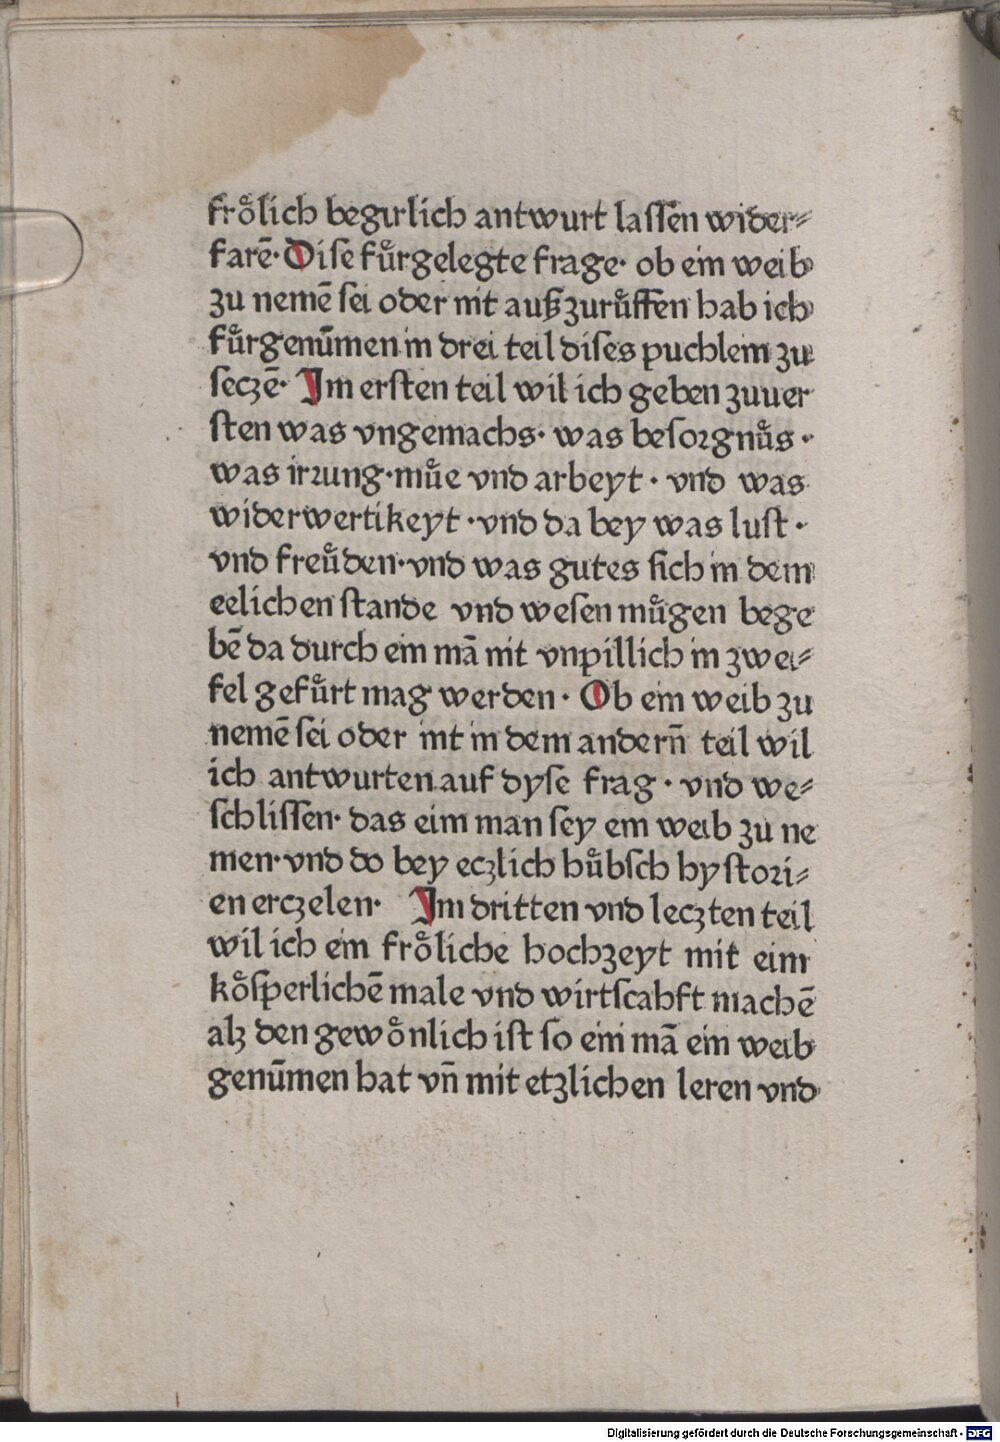 froͤlich begirlich antwurt laſſen wider⸗
farē· Diſe fuͤrgelegte frage· ob ein weib
zu nemē ſei oder nit auß zuruͤffen hab ich
fuͤrgenūmen in drei teil diſes puchlein zu
ſeczē· Im erſten teil wil ich geben zuuer
ſten was vngemachs· was beſorgnuͤs ·
was irꝛung·muͤe vnd arbeyt · vnd was
widerwertikeyt ·vnd da bey was luſt ·
vnd freuͤden·vnd was gutes ſich in dem
eelichen ſtande vnd weſen muͤgen bege
bē da durch ein mā nit vnpillich in zwei⸗
fel gefuͤrt mag werden · Ob ein weib zu
nemē ſei oder nit in dem andern̄ teil wil
ich antwurten auf dyſe frag · vnd we⸗
ſchliſſen· das eim man ſey ein weib zu ne
men·vnd do bey eczlich huͤbſch hyſtoꝛi⸗
en erczelen· Im dritten vnd leczten teil
wil ich ein froͤliche hochzeyt mit eim
koͤſperlichē male vnd wirtſcahft machē
alʒ den gewoͤnlich iſt ſo ein mā ein weib
genūmen hat vn̄ mit etzlichen leren vnd
Digitalisierung gefördert durch die Deutsche Forschungsgemeinschaft - DFG